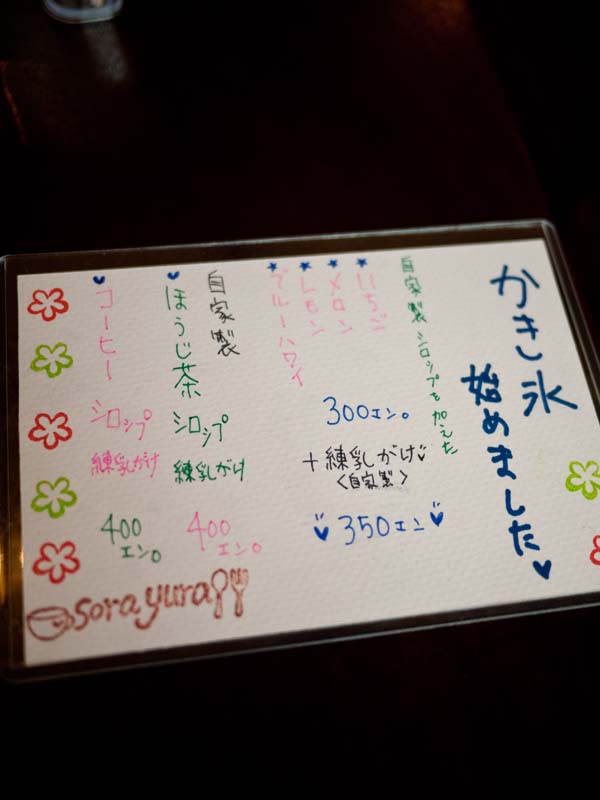 かき氷
始めました
自家製シロップを加えた
いちご
メロン
レモン
ブルーハワイ
300エン。
+練乳がけ
〈自家製〉
350エン
自家製
ほうじ茶
シロップ
練乳がけ
400
エン。
コーヒー
シロップ
練乳がけ
400
エン。
sora yura